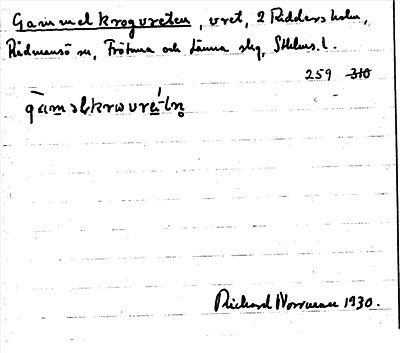 Gammelkrogvreten, vret, 2 Riddersholm,
Rådmansö sn, Frötuna och Länna skg, Sthlms. l.
259 310
Richard Norrman 1930.